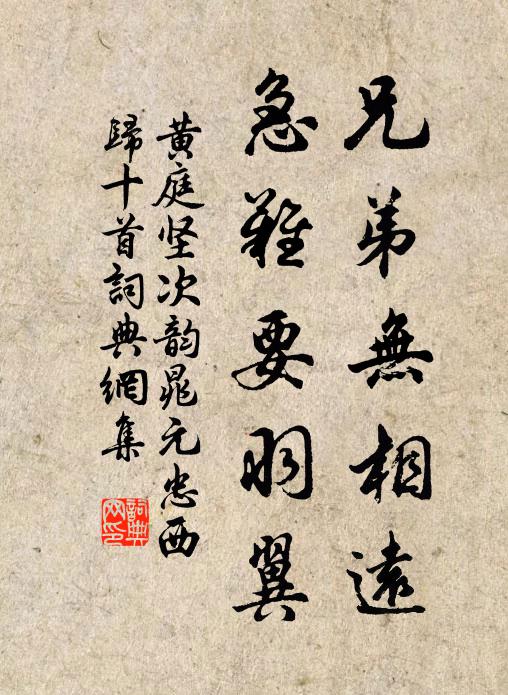 兄弟無相遠
急難要羽翼
黄庭坚次韵晁元忠西
歸十首詞典網集
詞典
网印